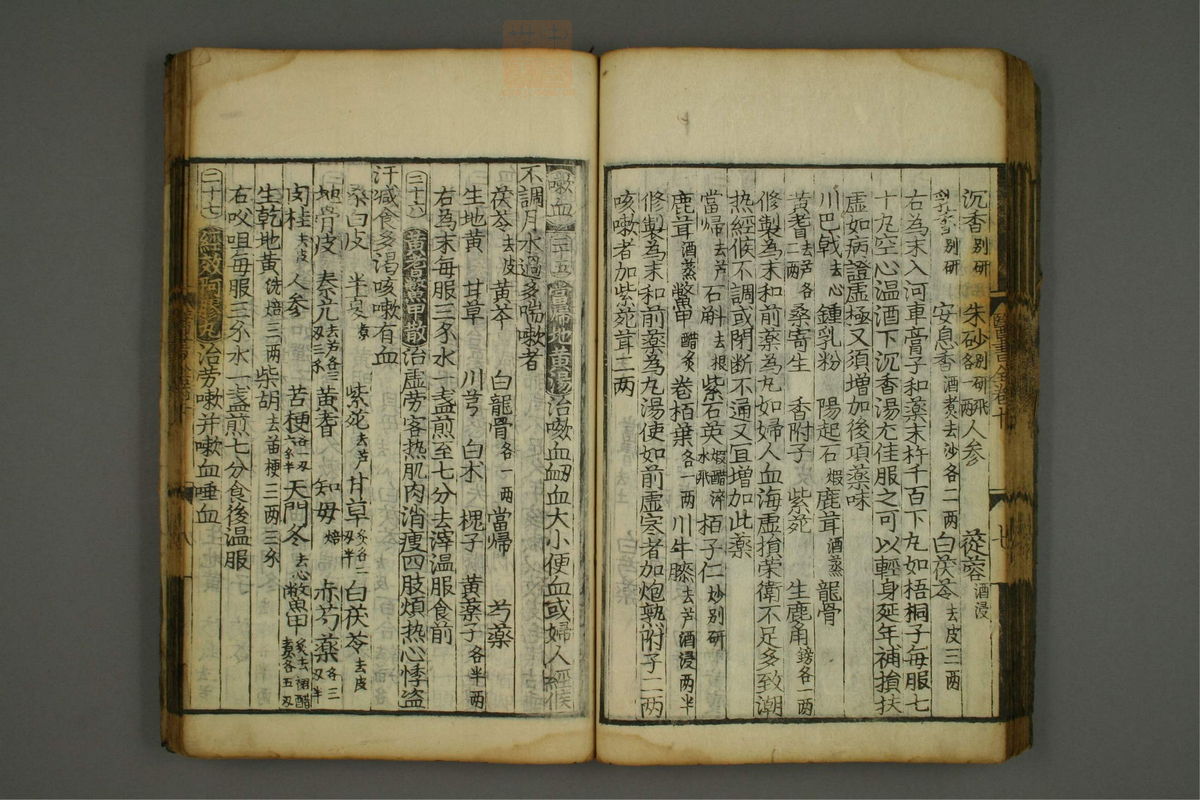 沉香別研 朱砂別研飛各一兩 人参 蓯蓉酒浸
別研 安息香酒煮去沙各二兩 白茯苓去皮三兩
右為末入河車膏子和藥末杵千百下丸如梧桐子每服七
十丸空心温酒下沉香湯尤佳服之可以輕身延年補損扶
虚如病證虚極又須增加後項藥味
川巴戟去心 鍾乳粉 陽起石煆 鹿茸酒蒸 龍骨
黄耆去芦各二兩 桑寄生 香附子去皮 紫菀 生鹿角鎊各一兩
修製為末和前藥為丸如婦人血海虚損荣衛不足多致潮
热經候不調或閉断不通又宜增加此藥
當帰去芦 石斛去根 紫石英煆醋淬水飛 栢子仁炒別研
鹿茸酒蒸 鱉甲醋炙 卷栢葉各一兩 川牛膝去芦酒浸一两半
修製為末和前藥為丸湯使如前虚寒者加炮熟附子二两
咳嗽者加紫菀茸二两
嗽血 二十五 當帰地黄湯 治嗽血衂血大小便血或婦人經候
不調月水過多喘嗽者
茯苓去皮 黄芩 白龍骨各一两 當帰 芍藥
生地黄 甘草 川芎 白术 槐子 黄藥子各半两
右為末每服三分水一盞煎至七分去滓温服食前
二十六 黄耆鱉甲散 治虚劳客热肌肉消瘦四肢煩热心悸盗
汗减食多渴咳嗽有血
桑白皮 半夏 紫菀去芦 甘草 白茯苓去皮
地骨皮 秦艽去芦各三 黄耆 知母焙 赤芍藥
肉桂去皮 人参 苦梗 天門冬去心 鱉甲
生乾地黄洗焙三两 柴胡去苗梗三两三分
右㕮咀每服三分水一盞煎七分食後温服
二十七 經效阿膠丸 治劳嗽并嗽血唾血